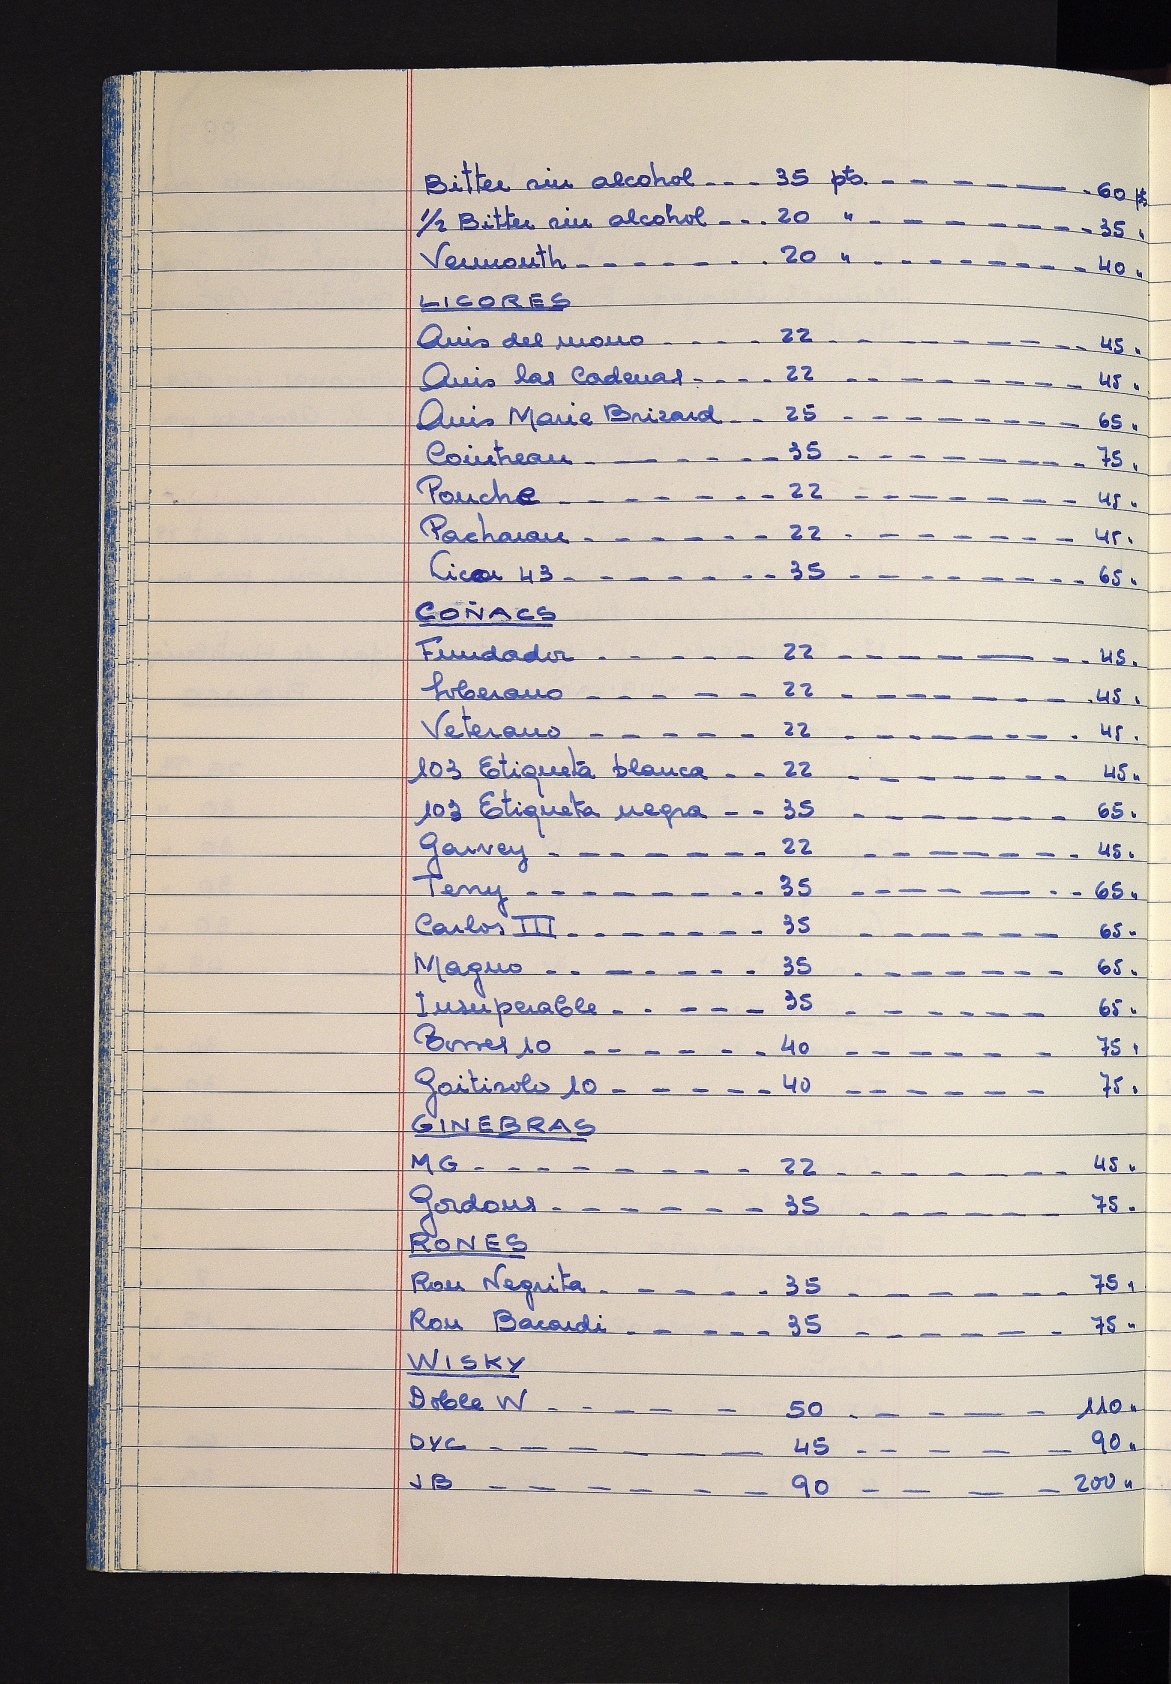 Bitter sin alcohol --- 35 pts. - - - - - 60 pts
1/2 Bitter sin alcohol --- 20 " - - - - - - - 35 "
Vermouth - - - - - - - 20 " - - - - - - - 40 "
LICORES
Anis del mono - - - - 22 - - - - - - - 45 "
Anis las Cadenas - - - - 22 - - - - - - - 45 "
Anis Marie Brizard - - 25 - - - - - - - 65 "
Cointreau - - - - - - - 35 - - - - - - - 75 "
Ponche - - - - - - 22 - - - - - - 45 "
Pacharan - - - - - - 22 - - - - - - 45 "
Licor 43 - - - - - - - 35 - - - - - - - 65 "
COÑACS
Fundador - - - - - 22 - - - - - - 45 "
Soberano - - - - - 22 - - - - - - 45 "
Veterano - - - - - 22 - - - - - - 45 "
103 Etiqueta blanca - - 22 - - - - - - 45 "
103 Etiqueta negra - - 35 - - - - - - 65 "
Garvey - - - - - - - 22 - - - - - - 45 "
Terry - - - - - - - - 35 - - - - - - - 65 "
Carlos III - - - - - - - 35 - - - - - - 65 "
Magno - - - - - - - 35 - - - - - - 65 "
Insuperable - - - - - 35 - - - - - - 65 "
Torres 10 - - - - - - 40 - - - - - - 75 "
Goitisolo 10 - - - - - 40 - - - - - - 75 "
GINEBRAS
MG - - - - - - - - - 22 - - - - - - 45 "
Gordons - - - - - - 35 - - - - - - 75 "
RONES
Ron Negrita - - - - - 35 - - - - - - - 75 "
Ron Bacardi - - - - - 35 - - - - - - 75 "
WISKY
Doble W - - - - - 50 - - - - - 110 "
DYC - - - - - - 45 - - - - - 90 "
JB - - - - - - - 90 - - - - - 200 "